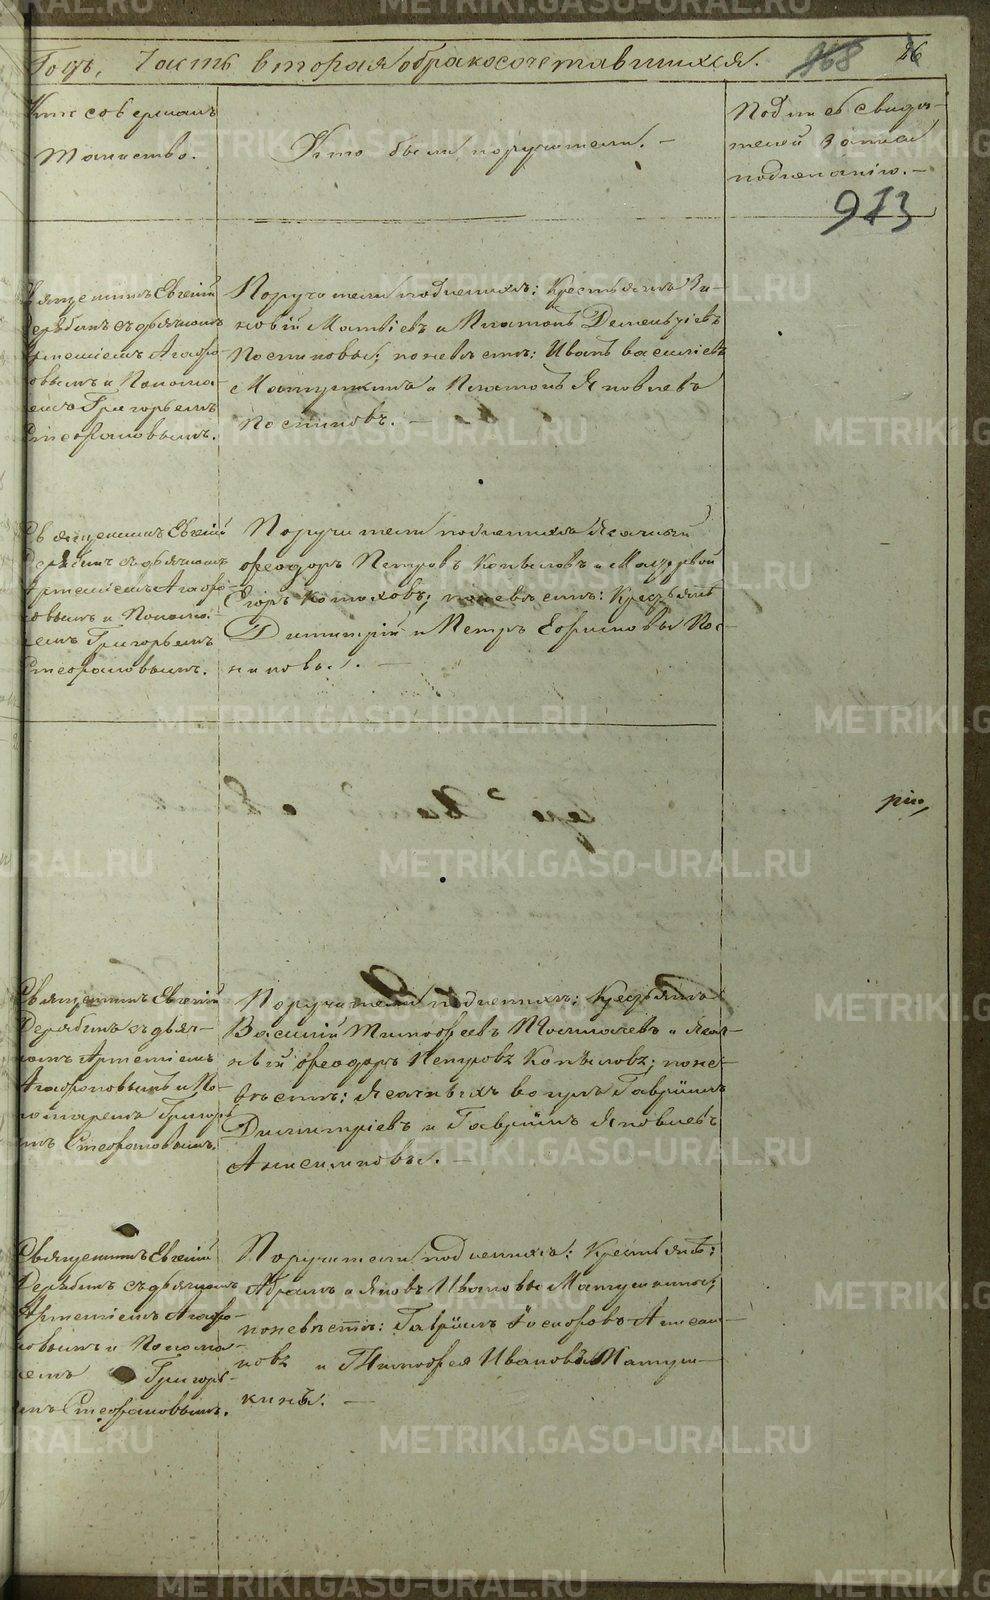 Годъ, Часть вторая о бракосочетавшихся. 968 26
Кто совершалъ
таинство.
Кто были поручители. —
Подпись свидѣ-
телей записи
по желанію. —
973
Священникъ Евгеній
Дерябинъ съ дьячкомъ
Артеміемъ Агафо-
новымъ и Понома-
ремъ Григорьемъ
Стефановымъ.
Поручители по женихѣ: Крестьяне Зи-
новій Матвѣевъ и Платонъ Дементьевъ
Постниковы; по невѣстѣ: Иванъ Васильевъ
Матушкинъ и Платонъ Яковлевъ
Постниковъ. —
Священникъ Евгеній
Дерябинъ съ дьячкомъ
Артеміемъ Агафо-
новымъ и Понома-
ремъ Григорьемъ
Стефановымъ.
Поручители по женихѣ Ясачный
Феодоръ Петровъ Копыловъ и
Егоръ; по невѣстѣ: Крестьяне
Димитрій и Петръ Ефимовы Пос-
никовы. —
Священникъ Евгеній
Дерябинъ съ дьяч-
комъ Артеміемъ
Агафоновымъ и По-
номаремъ Григорь-
емъ Стефановымъ.
Поручители по женихѣ: Крестьянъ
Василій Тимофеевъ Толмачевъ и Ясач-
ный Феодоръ Петровъ Копыловъ; по не-
вѣстѣ: Ясачныхъ Гавріилъ
Димитріевъ и Гавріилъ Яковлевъ
Анисимковы. —
Священникъ Евгеній
Дерябинъ съ дьячкомъ
Артеміемъ Агафо-
новымъ и Понома-
ремъ Григорь-
емъ Стефановымъ.
Поручители по женихѣ: Крестьяне:
Абрамъ и Яковъ Ивановы Матушкины;
по невѣстѣ: Гавріилъ
и Тимофея Ивановы Матуш-
кины. —
METRIKI.GASO-URAL.RU